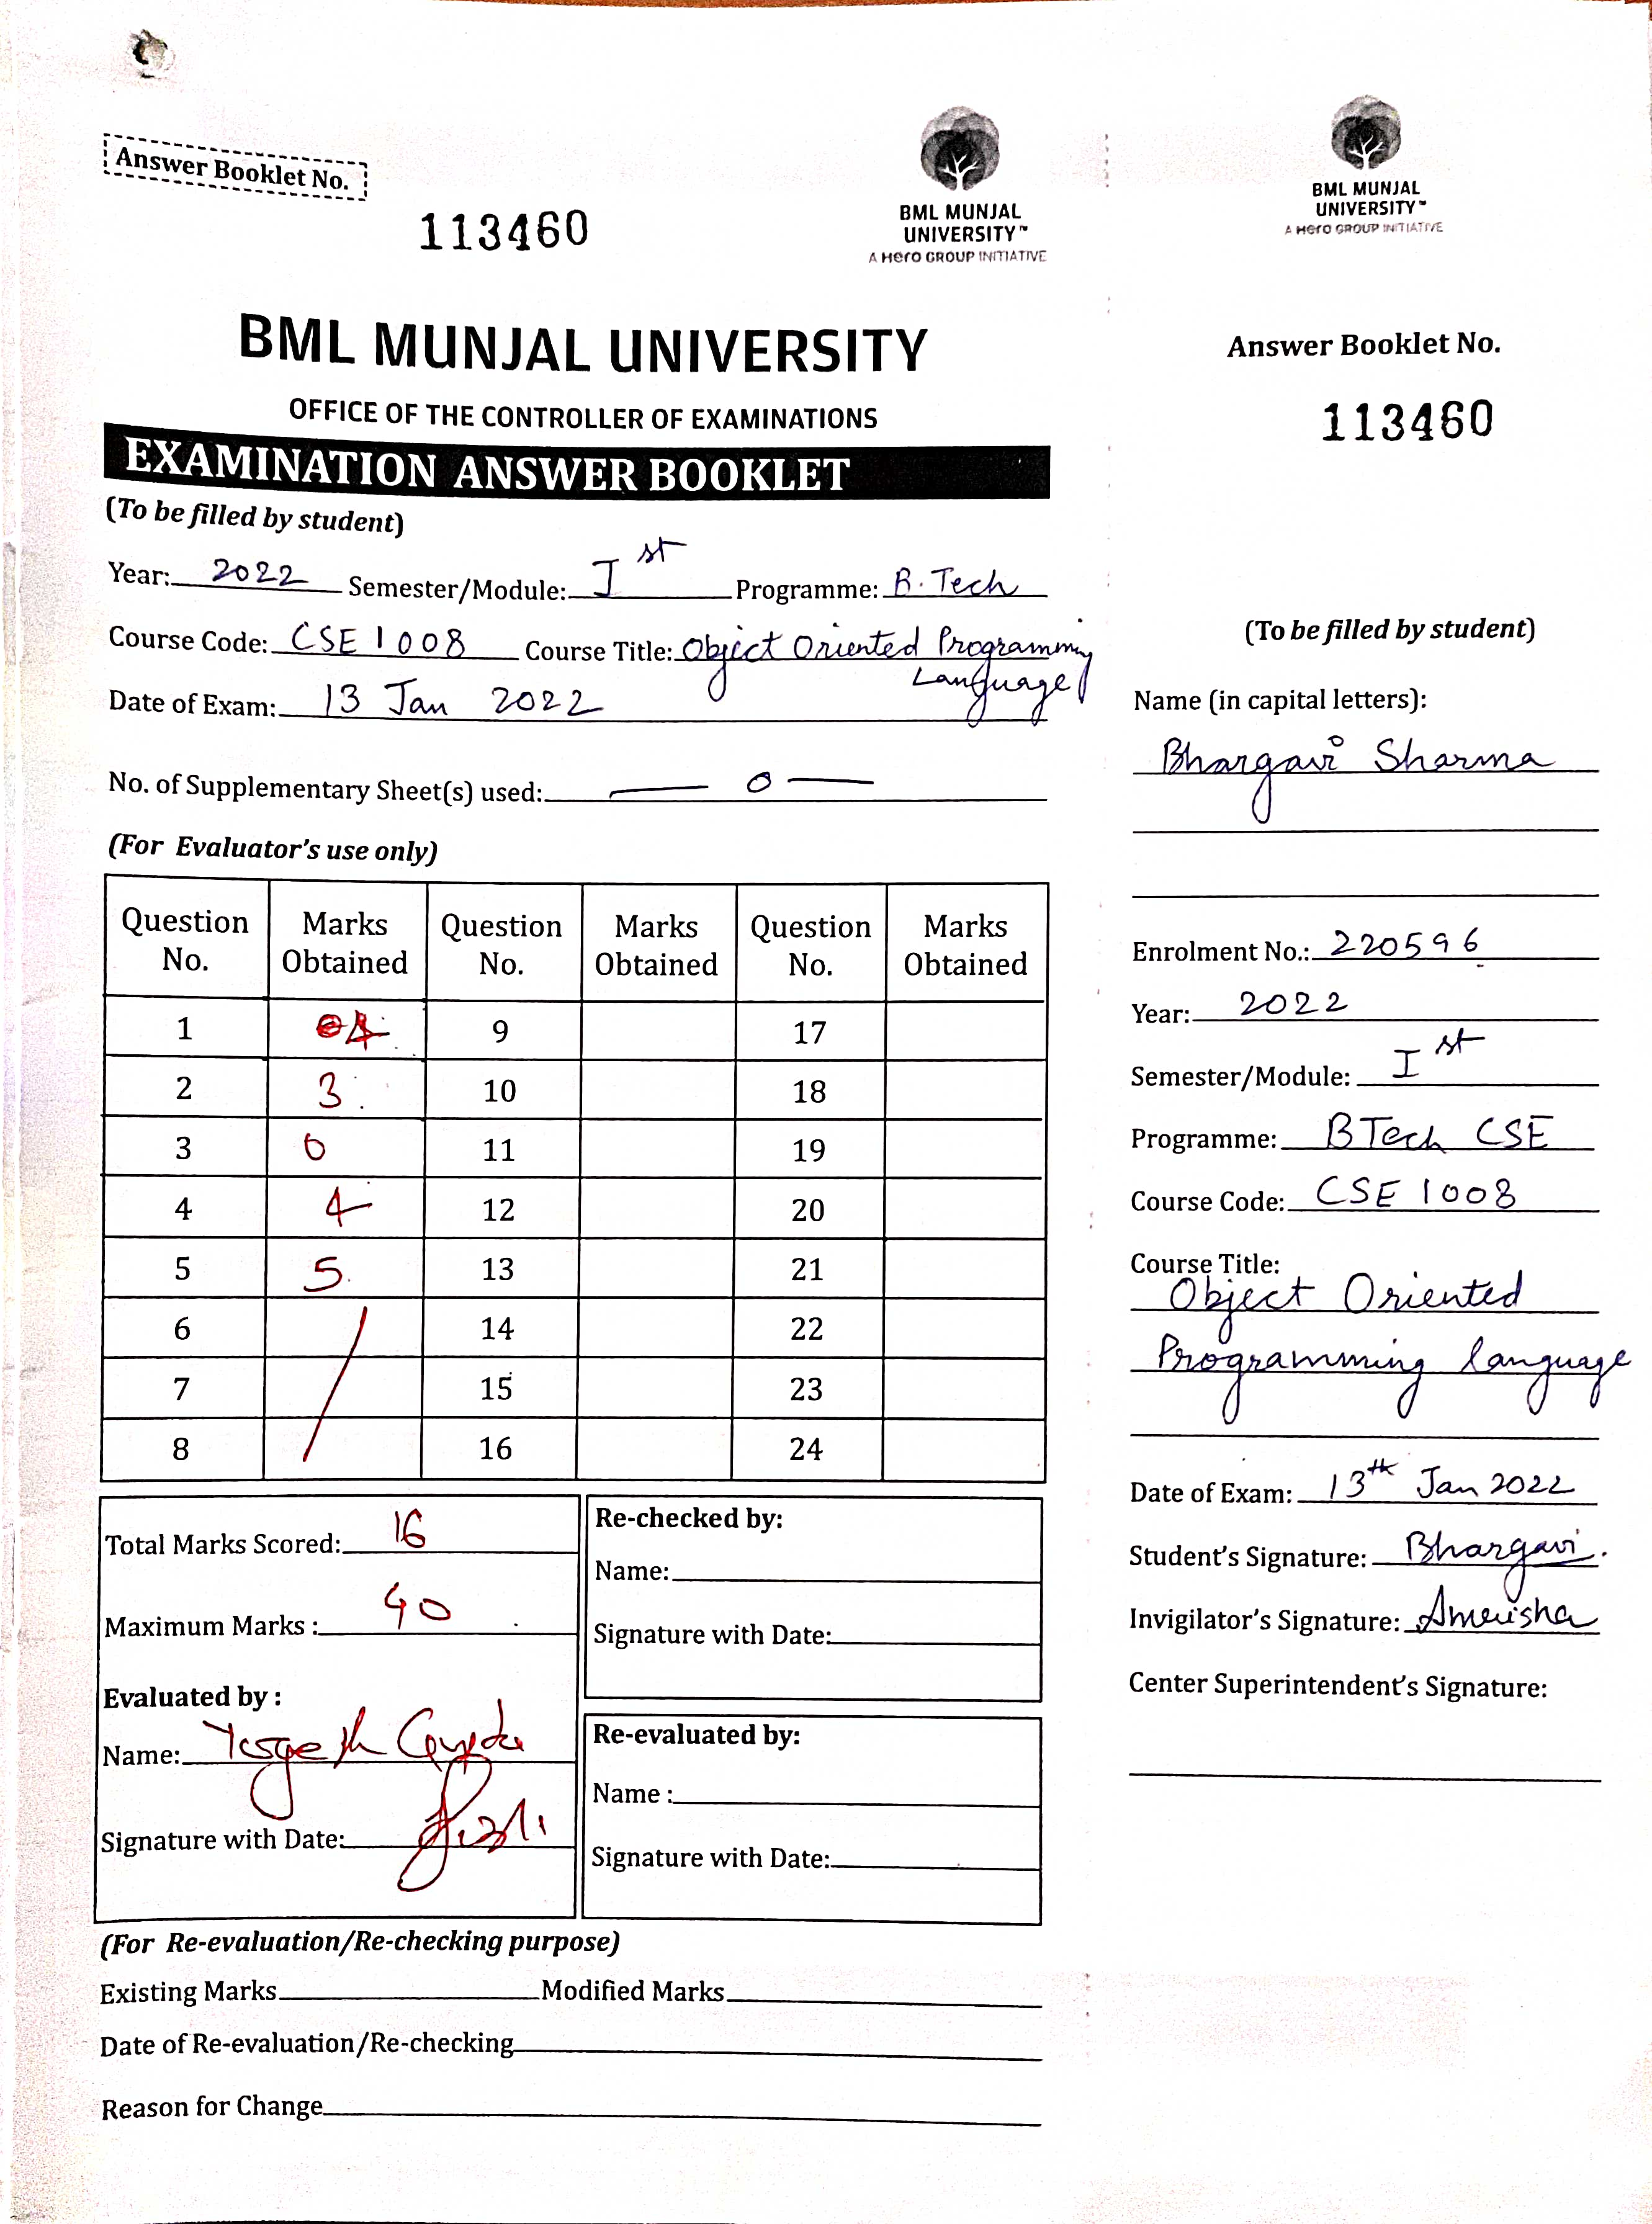 Answer Booklet No.
113460
BML MUNJAL
UNIVERSITY™
A Hero GROUP INITIATIVE
BML MUNJAL UNIVERSITY
OFFICE OF THE CONTROLLER OF EXAMINATIONS
EXAMINATION ANSWER BOOKLET
(To be filled by student)
Year: 2022 Semester/Module: I st Programme: B.Tech
Course Code: CSE 1008 Course Title: Object Oriented Programming
Language
Date of Exam: 13 Jan 2022
No. of Supplementary Sheet(s) used: — 0 —
(For Evaluator's use only)
Question No. Marks Obtained Question No. Marks Obtained Question No. Marks Obtained
1 04 9 17
2 3 10 18
3 0 11 19
4 4 12 20
5 5 13 21
6 14 22
7 15 23
8 16 24
Total Marks Scored: 16
Maximum Marks : 40
Evaluated by :
Name: Yogesh Gupta
Signature with Date:
Re-checked by:
Name:
Signature with Date:
Re-evaluated by:
Name :
Signature with Date:
(For Re-evaluation/Re-checking purpose)
Existing Marks Modified Marks
Date of Re-evaluation/Re-checking
Reason for Change
BML MUNJAL
UNIVERSITY™
A Hero GROUP INITIATIVE
Answer Booklet No.
113460
(To be filled by student)
Name (in capital letters):
Bhargavi Sharma
Enrolment No.: 220596
Year: 2022
Semester/Module: I st
Programme: BTech CSE
Course Code: CSE 1008
Course Title:
Object Oriented
Programming language
Date of Exam: 13th Jan 2022
Student's Signature: Bhargavi.
Invigilator's Signature: Ameisha
Center Superintendent's Signature: